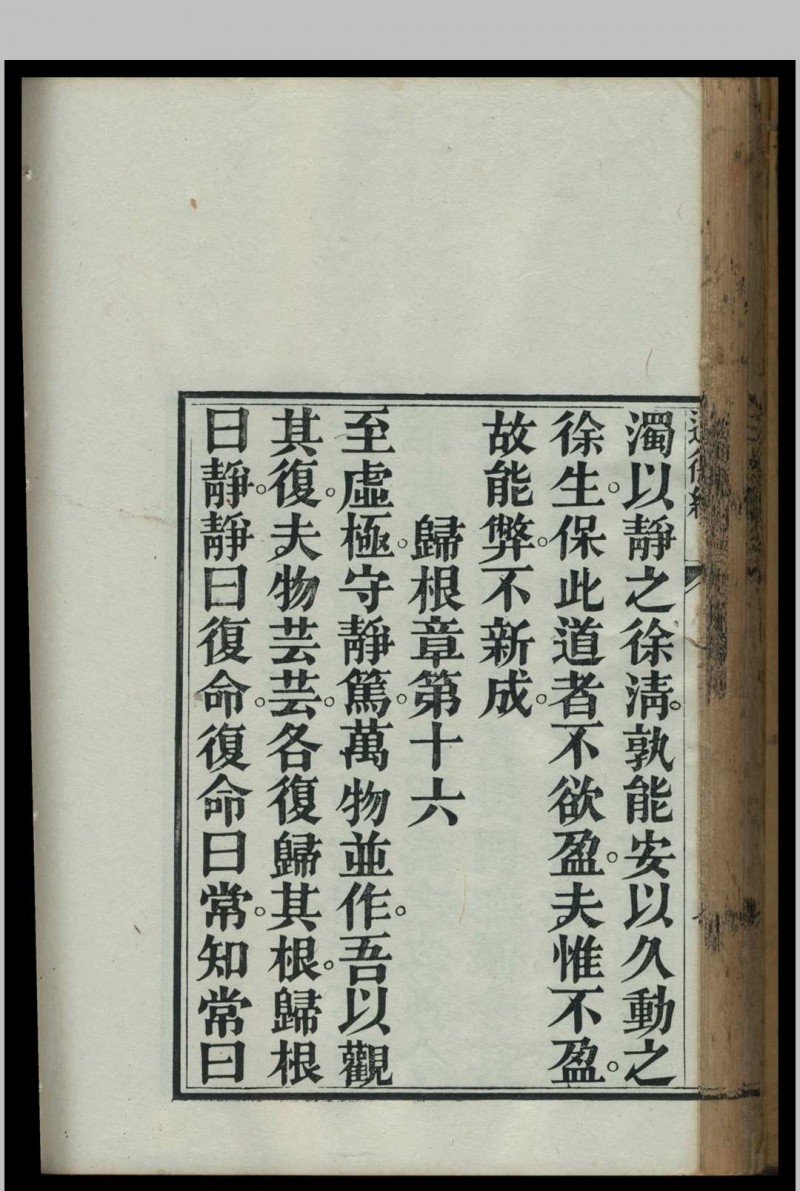 道德經
濁以靜之徐淸。孰能安以久動之
徐生。保此道者不欲盈。夫惟不盈。
故能弊。不新成。
歸根章第十六
至虛極。守靜篤。萬物並作。吾以觀
其復。夫物芸芸。各復歸其根。歸根
曰靜。靜曰復命。復命曰常。知常曰